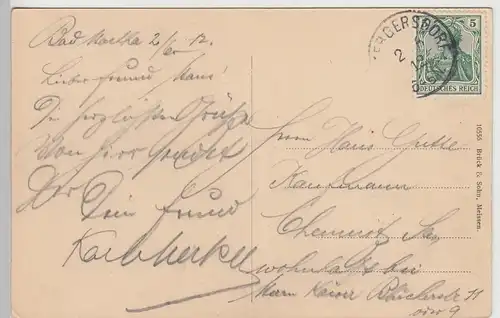 Bad 2/6 12.
Lieber Freund Hans!
Die herzlichsten Grüße
von hier sendet
Dir
Dein Freund
Karl Merkel
Herrn Hans Gutte
Kaufmann
Chemnitz Sa.
wohnhaft bei
Herrn Kaiser Blücherstr 11
oder 9
ERGERSDORF
2
5
DEUTSCHES REICH
10555 Brück & Sohn, Meissen.